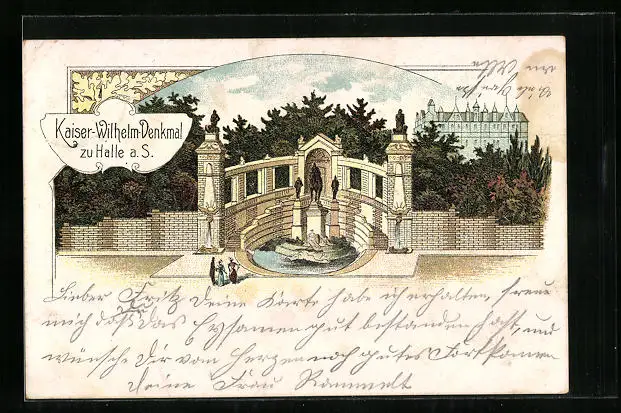 Kaiser-Wilhelm-Denkmal
zu Halle a. S.
Lieber Fritz Deine Karte habe ich erhalten, freue
mich daß das Du Exsamen gut bestanden hast, und
wünsche Dir vom Herzen noch gutes Fortkommen
Deine Frau Rammelt